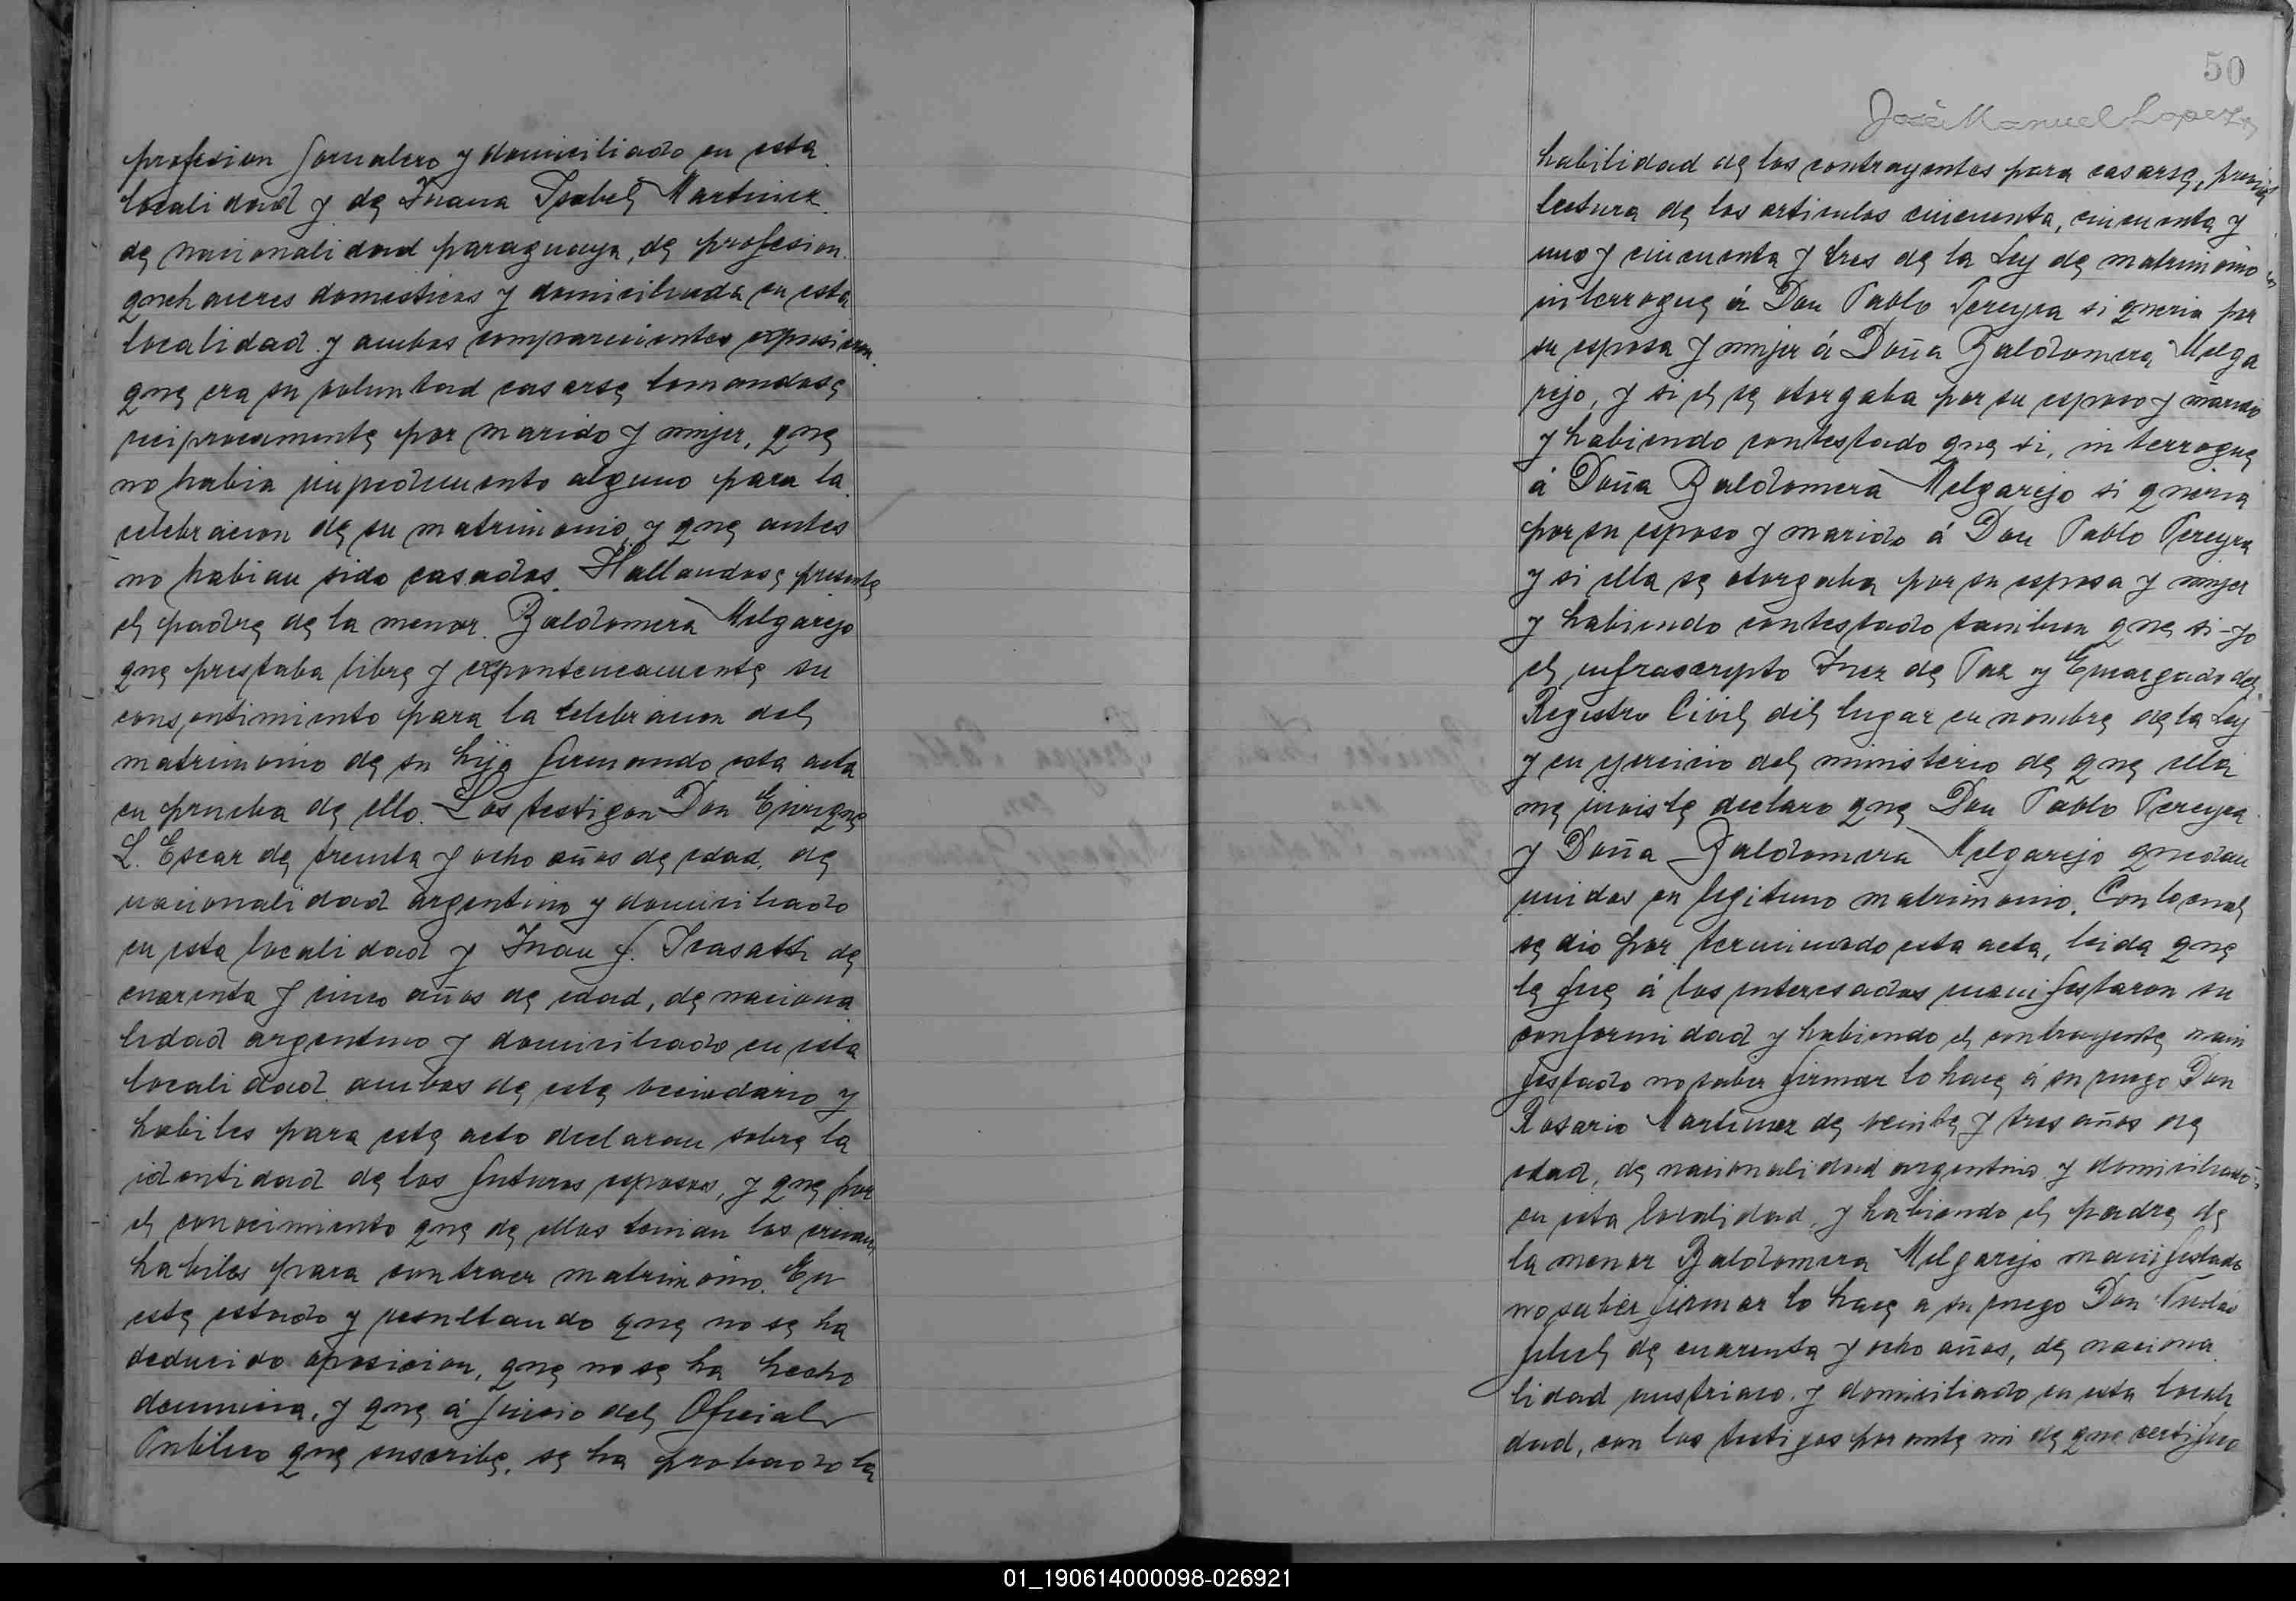 profesion jornalero y domiciliado en esta
localidad y de Juana Isabel Martinez
de nacionalidad paraguaya, de profesion
quehaceres domesticos y domiciliada en esta
localidad y ambos comparecientes expusieron
que era su voluntad casarse tomandose
reciprocamente por marido y mujer, que
no habia impedimento alguno para la
celebracion de su matrimonio, y que antes
no habian sido casados. Hallandose presente
el padre de la menor Baldomera Melgarejo
que prestaba libre y exponteneamente su
consentimiento para la celebracion del
matrimonio de su hija firmando esta acta
en prueba de ello. Los testigos Don Enrique
L. Escar de treinta y ocho años de edad, de
nacionalidad argentino y domiciliado
en esta localidad y Juan J. de
cuarenta y cinco años de edad, de naciona
lidad argentino y domiciliado en esta
localidad ambos de este vecindario y
habiles para este acto declaran sobre la
identidad de los futuros esposos, y que por
el conocimiento que de ellos tenian los creian
habiles para contraer matrimonio. En
este estado y resultando que no se ha
deducido oposicion, que no se ha hecho
denuncia, y que á juicio del Oficial
Publico que suscribe, se ha probado la
50
José Manuel Lopez
habilidad de los contrayentes para casarse, previa
lectura de los articulos cincuenta, cincuenta y
uno y cincuenta y tres de la Ley de matrimonio
interrogue á Don Pablo Pereyra si queria por
su esposa y mujer á Doña Baldomera Melga
rejo, y si el se otorgaba por su esposo y marido
y habiendo contestado que si, interrogue
á Doña Baldomera Melgarejo si queria
por su esposo y marido á Don Pablo Pereyra
y si ella se otorgaba por su esposa y mujer
y habiendo contestado tambien que si - yo
el infrascripto Juez de Paz y Encargado del
Registro Civil del lugar en nombre de la Ley
y en ejercicio del ministerio de que ella
me inviste declaro que Don Pablo Pereyra
y Doña Baldomera Melgarejo quedan
unidos en legitimo matrimonio. Con lo cual
se dio por terminado esta acta, leida que
le fue á los interesados manifestaron su
conformidad y habiendo el contrayente mani
festado no saber firmar lo hace á su ruego Don
Rosario Martinez de veinte y tres años de
edad, de nacionalidad argentino y domiciliado
en esta localidad, y habiendo el padre de
la menor Baldomera Melgarejo manifestado
no saber firmar lo hace a su ruego Don
de cuarenta y ocho años, de naciona
lidad austriaco y domiciliado en esta locali
dad, con los testigos por ante mi de que certifico
01_190614000098-026921